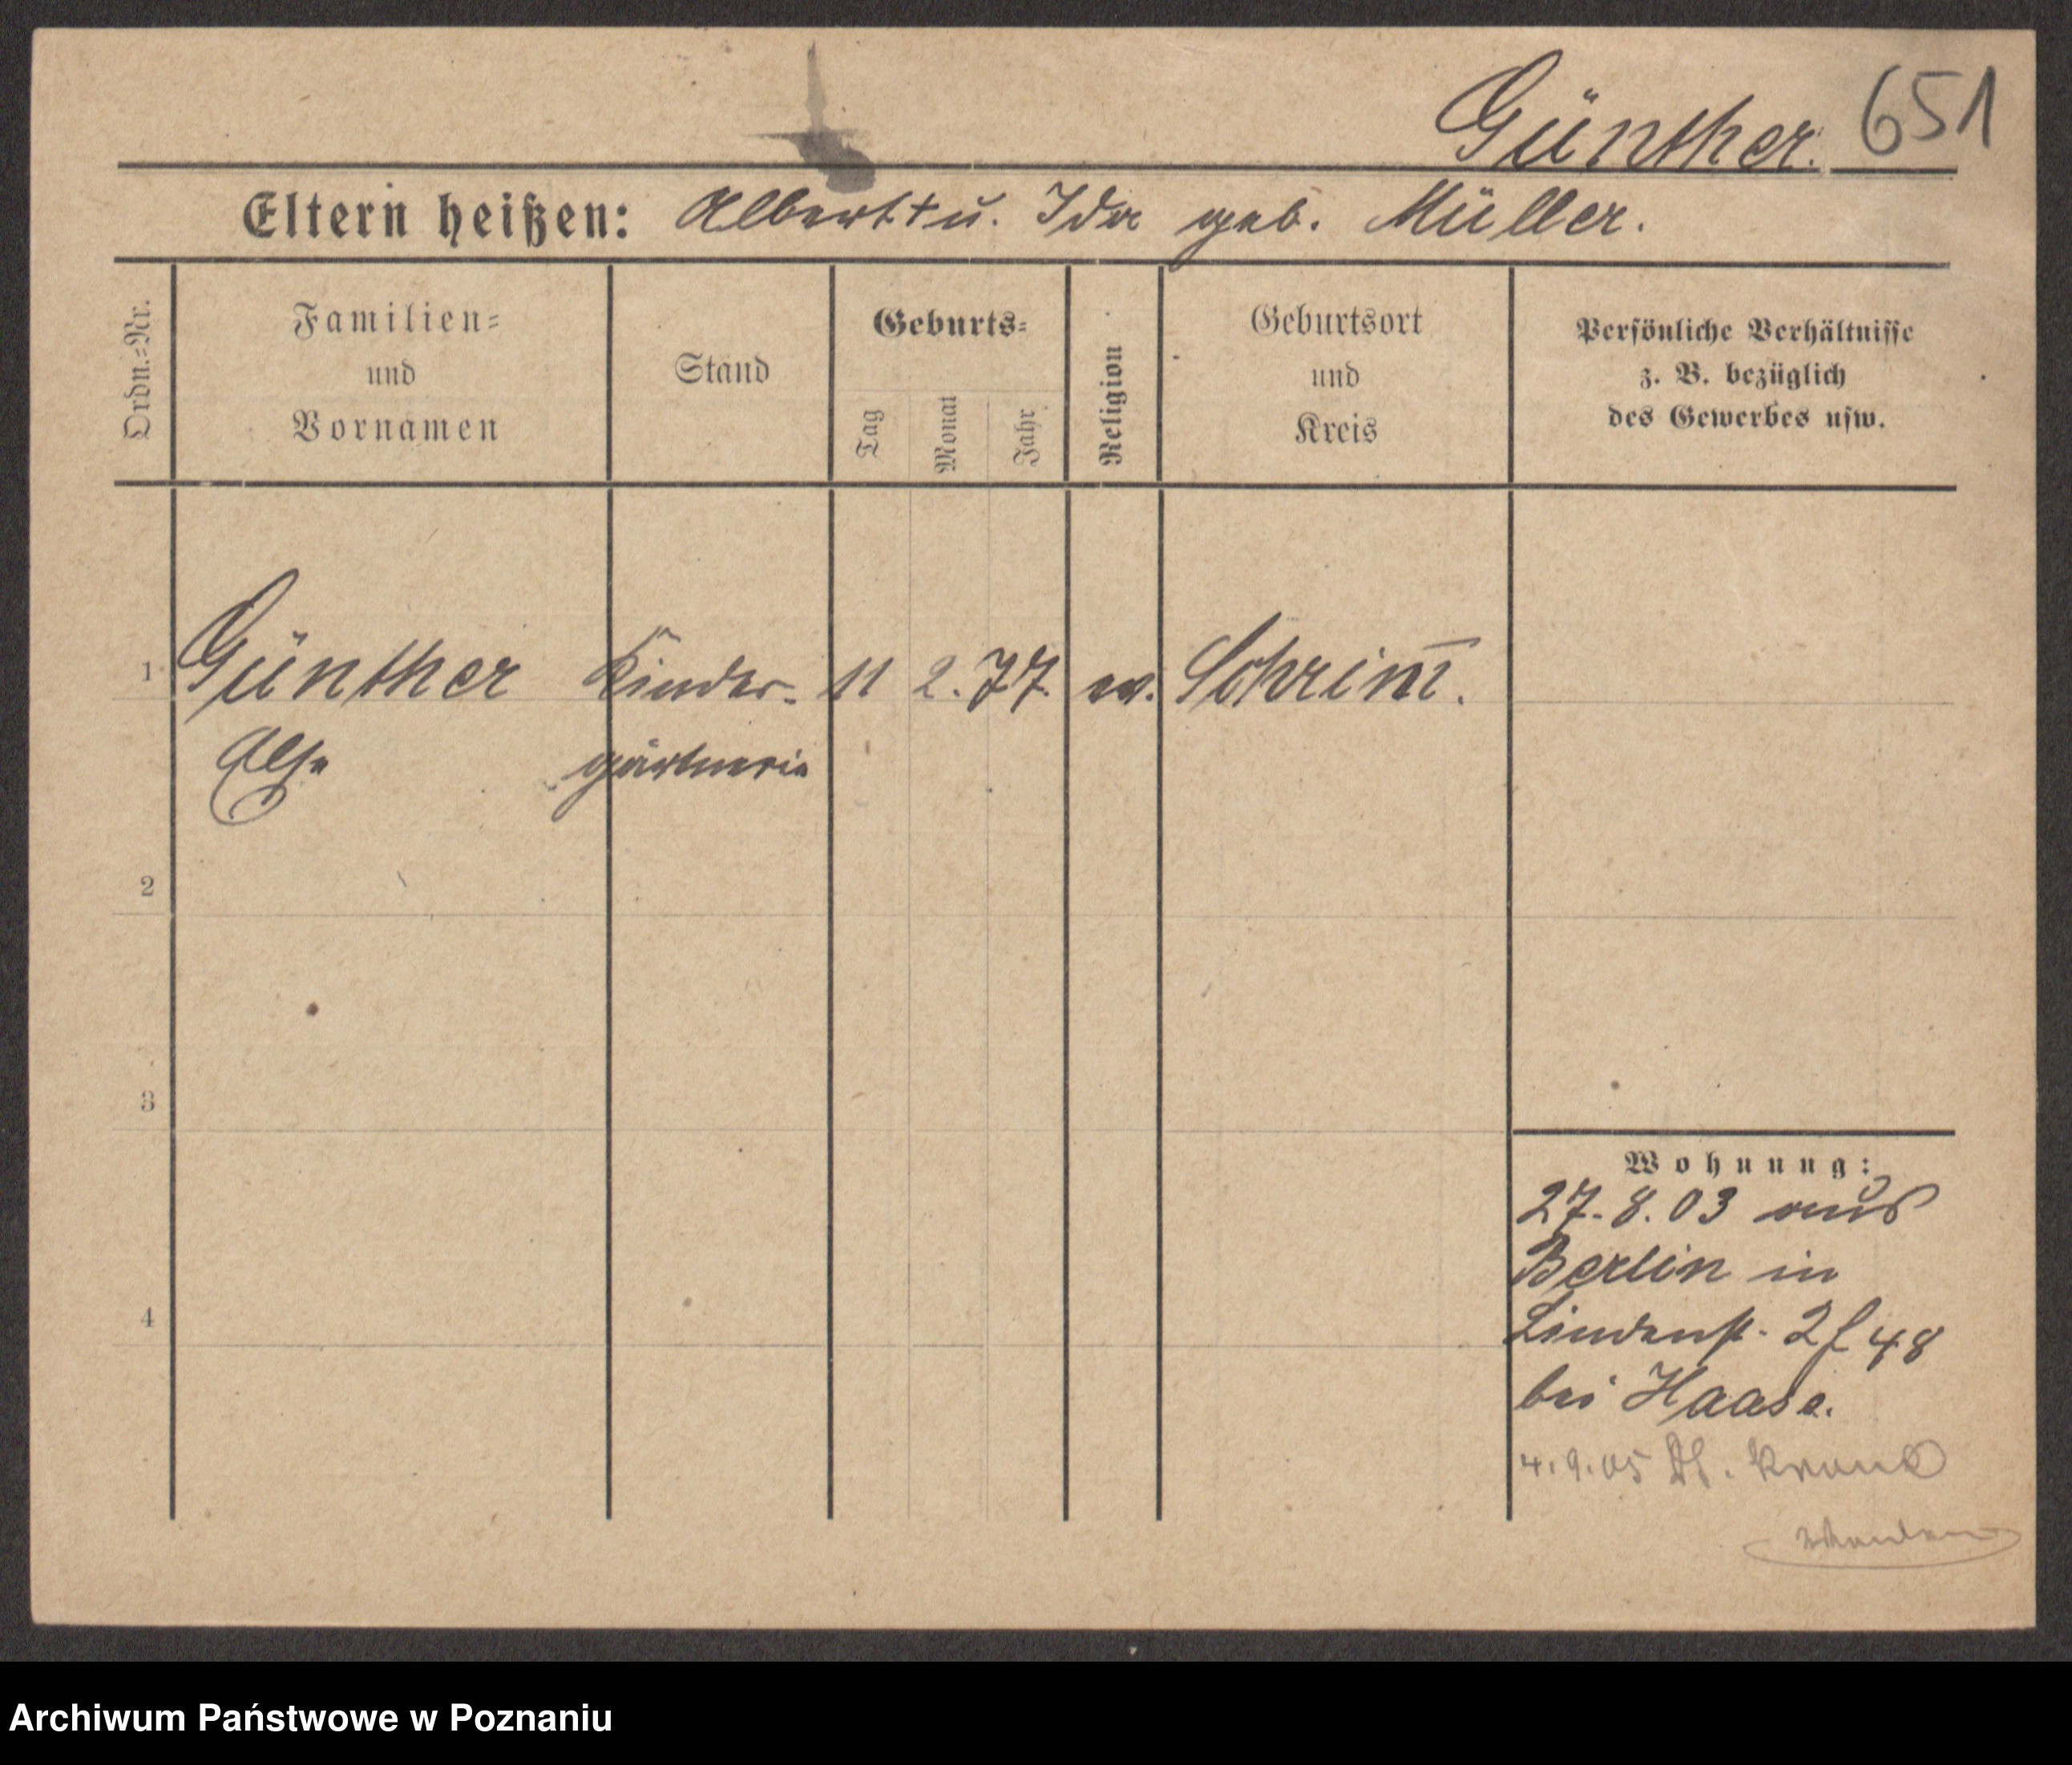 Günther. 651
Eltern heißen: Albert † u. Ida geb. Müller.
Ordn.=Nr.
Familien=
und
Vornamen
Stand
Geburts=
Tag
Monat
Jahr
Religion
Geburtsort
und
Kreis
Persönliche Verhältnisse
z. B. bezüglich
des Gewerbes usw.
1 Günther Kinder- 11 2. 77. ev. Schrim̅.
Else gärtnerin
2
3
4
Wohnung:
27. 8. 03 aus
Berlin in
Lindenst. 2 f 48
bei Haase.
4. 9. 05
Archiwum Państwowe w Poznaniu